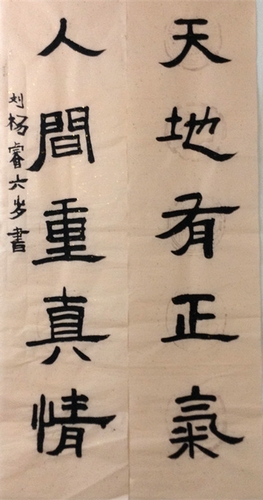 天地有正氣
人間重真情
刘杨睿六岁書